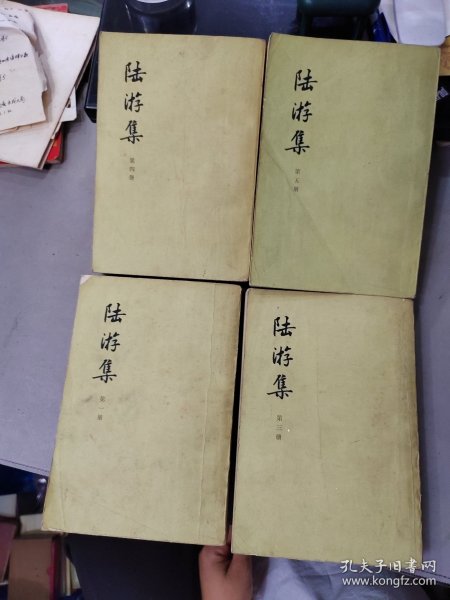 陆游集
第四册
陆游集
第五册
陆游集
第一册
陆游集
第三册
孔夫子旧书网
www.kongfz.com